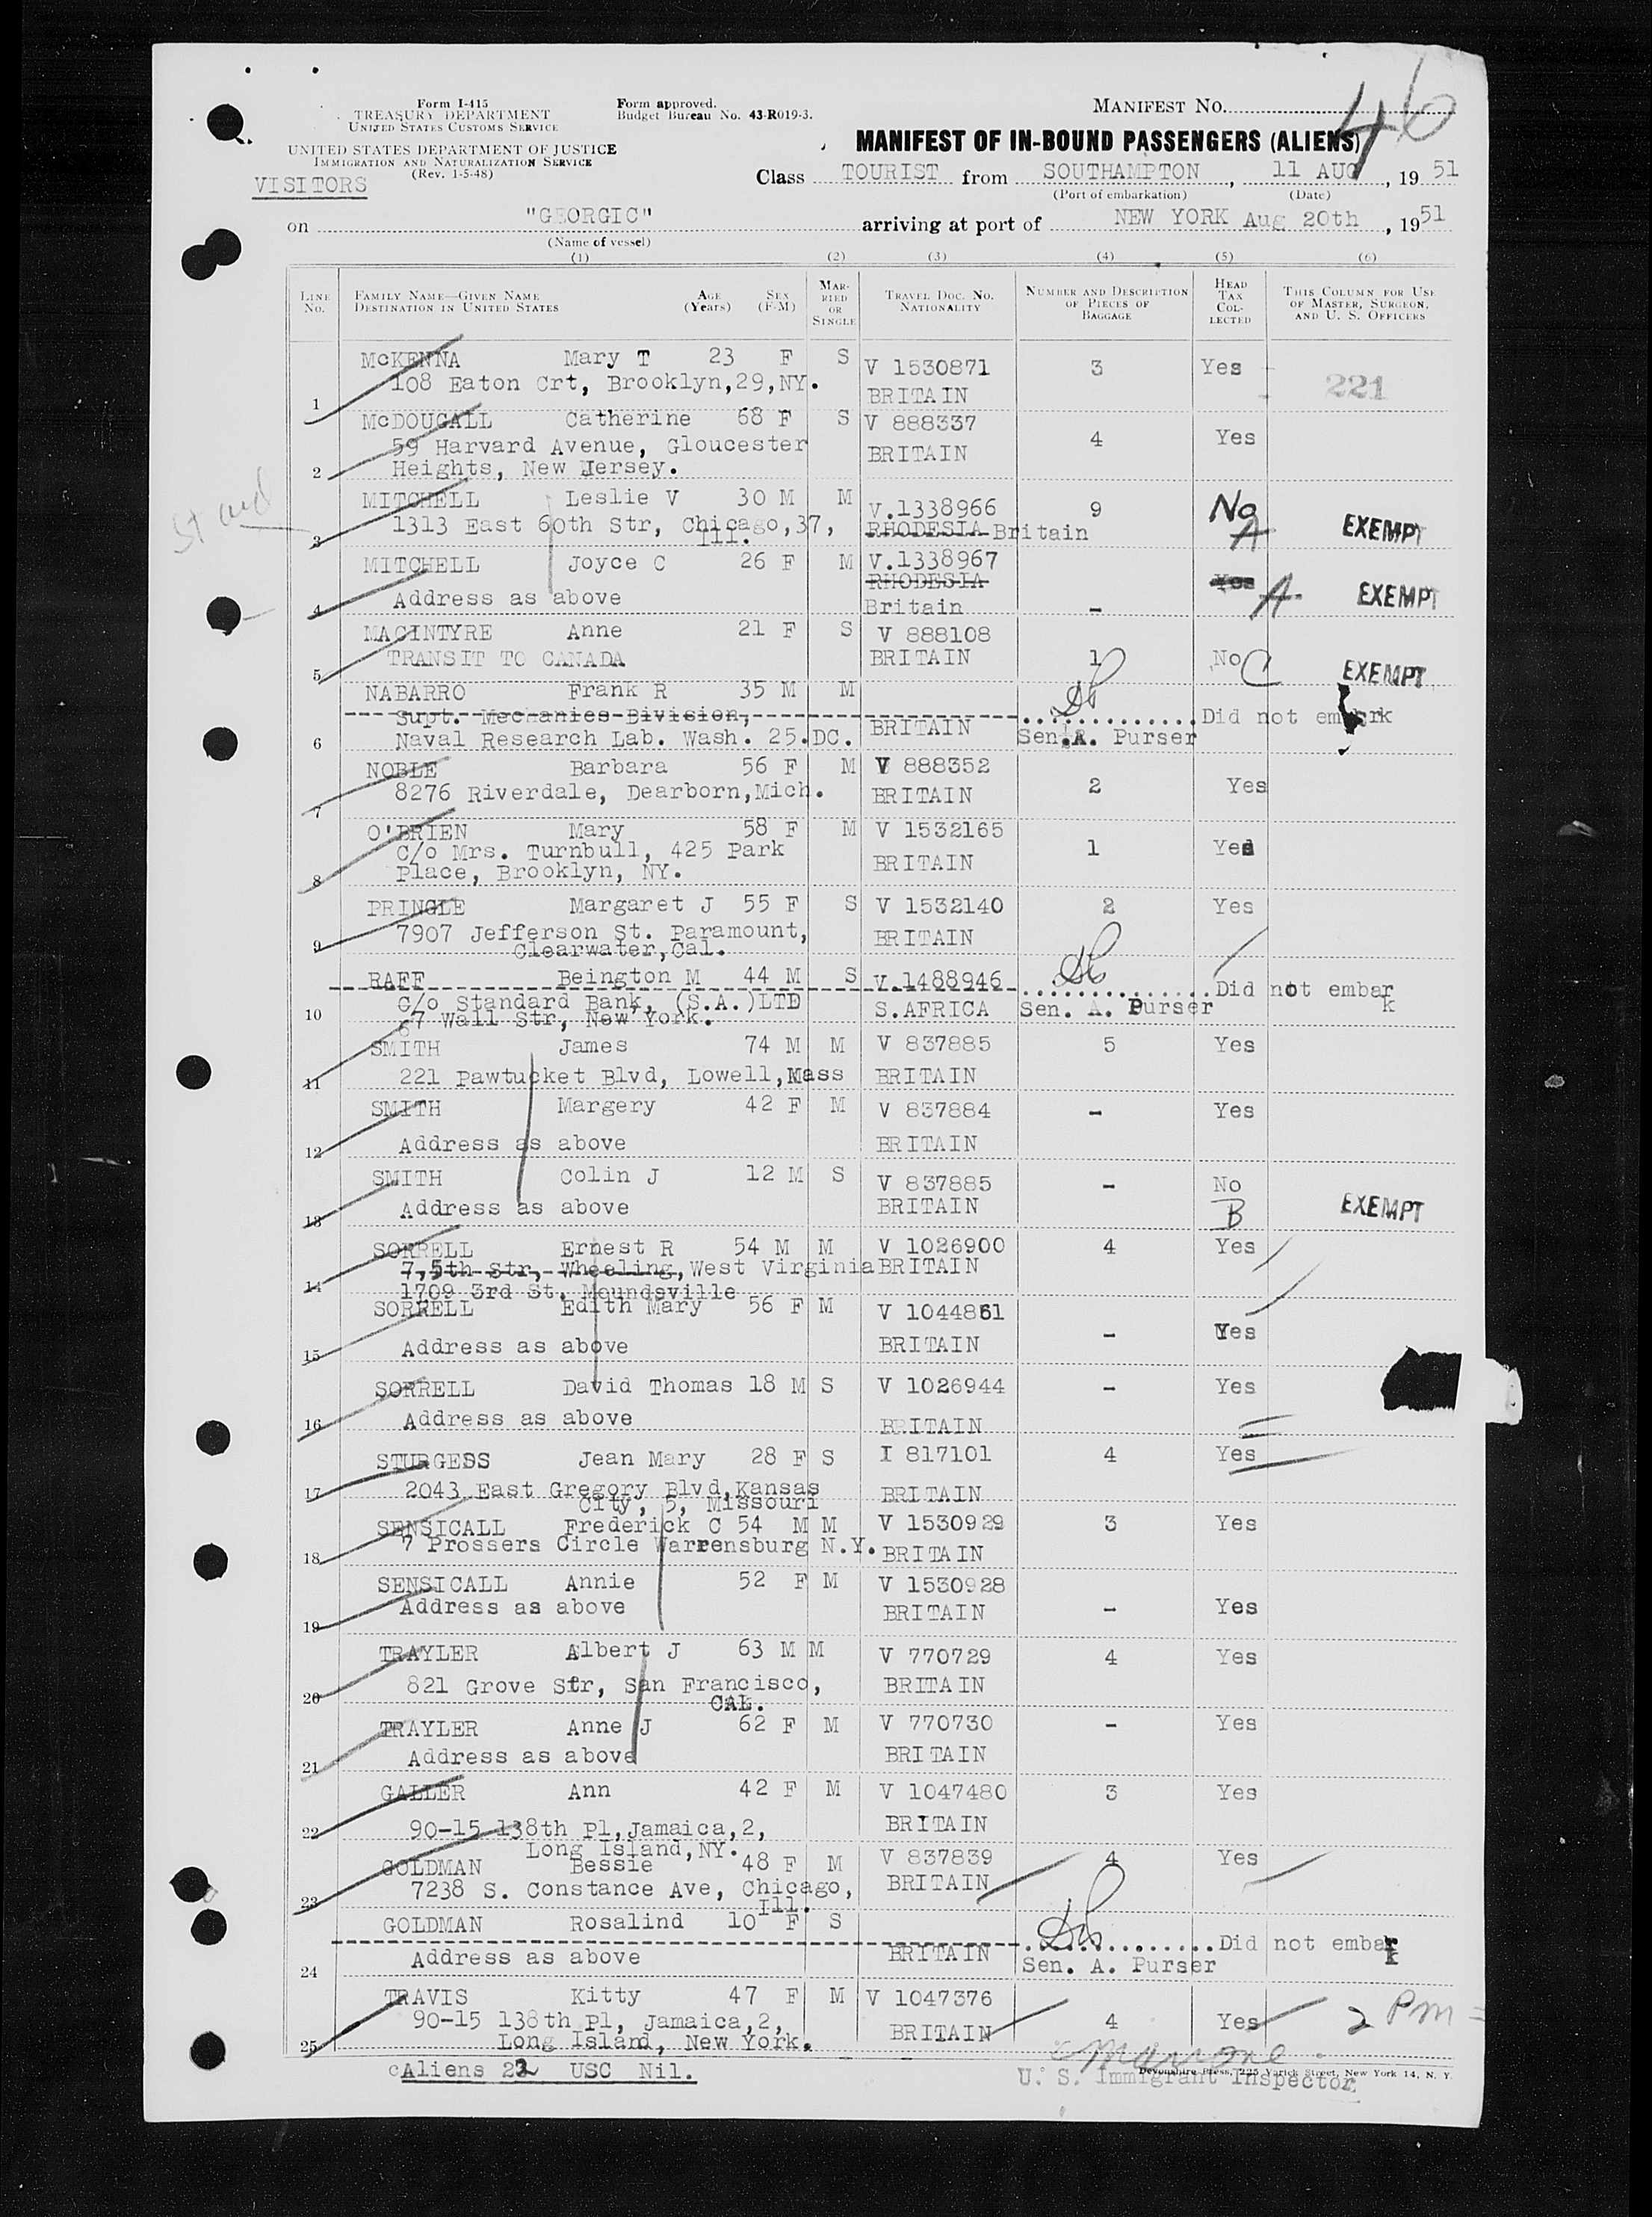 Form I-415
TREASURY DEPARTMENT
UNITED STATES CUSTOMS SERVICE
Form approved.
Budget Bureau No. 43-R019-3.
MANIFEST No. 46
UNITED STATES DEPARTMENT OF JUSTICE
IMMIGRATION AND NATURALIZATION SERVICE
(Rev. 1-5-48)
MANIFEST OF IN-BOUND PASSENGERS (ALIENS)
VISITORS
Class TOURIST from SOUTHAMPTON, 11 AUG, 19 51
(Port of embarkation) (Date)
on "GEORGIC" arriving at port of NEW YORK Aug 20th, 1951
(Name of vessel)
(1) (2) (3) (4) (5) (6)
LINE No. FAMILY NAME—GIVEN NAME DESTINATION IN UNITED STATES AGE (Years) SEX (F-M) MARRIED OR SINGLE TRAVEL DOC. No. NATIONALITY NUMBER AND DESCRIPTION OF PIECES OF BAGGAGE HEAD TAX COLLECTED THIS COLUMN FOR USE OF MASTER, SURGEON, AND U. S. OFFICERS
McKENNA Mary T 23 F S V 1530871 3 Yes 221
1 108 Eaton Crt, Brooklyn,29,NY. BRITAIN
McDOUGALL Catherine 68 F S V 888337 4 Yes
59 Harvard Avenue, Gloucester BRITAIN
2 Heights, New Jersey.
MITCHELL Leslie V 30 M M V.1338966 9 No A EXEMPT
3 1313 East 60th Str, Chicago,37, Ill. RHODESIA Britain
MITCHELL Joyce C 26 F M V.1338967 Yes A EXEMPT
RHODESIA
4 Address as above Britain -
MACINTYRE Anne 21 F S V 888108 1 No C EXEMPT
5 TRANSIT TO CANADA BRITAIN
NABARRO Frank R 35 M M
Supt. Mechanics Division, BRITAIN Did not embark
6 Naval Research Lab. Wash. 25.DC. Sen.A. Purser
NOBLE Barbara 56 F M V 888352 2 Yes
7 8276 Riverdale, Dearborn,Mich. BRITAIN
O'BRIEN Mary 58 F M V 1532165 1 Yes
C/o Mrs. Turnbull, 425 Park BRITAIN
8 Place, Brooklyn, NY.
PRINGLE Margaret J 55 F S V 1532140 2 Yes
9 7907 Jefferson St. Paramount, BRITAIN
Clearwater,Cal.
RAFF Beington M 44 M S V.1488946 Did not embark
10 C/o Standard Bank, (S.A.)LTD S.AFRICA Sen. A. Purser
67 Wall Str, New York.
SMITH James 74 M M V 837885 5 Yes
11 221 Pawtucket Blvd, Lowell,Mass BRITAIN
SMITH Margery 42 F M V 837884 - Yes
12 Address as above BRITAIN
SMITH Colin J 12 M S V 837885 - No B EXEMPT
13 Address as above BRITAIN
SORRELL Ernest R 54 M M V 1026900 4 Yes
14 7,5th Str, Wheeling, West Virginia BRITAIN
1709 3rd St. Moundsville
SORRELL Edith Mary 56 F M V 1044861 - Yes
15 Address as above BRITAIN
SORRELL David Thomas 18 M S V 1026944 - Yes
16 Address as above BRITAIN
STURGESS Jean Mary 28 F S I 817101 4 Yes
17 2043 East Gregory Blvd,Kansas BRITAIN
City, 5, Missouri
SENSICALL Frederick C 54 M M V 1530929 3 Yes
18 7 Prossers Circle Warrensburg N.Y. BRITAIN
SENSICALL Annie 52 F M V 1530928 - Yes
19 Address as above BRITAIN
TRAYLER Albert J 63 M M V 770729 4 Yes
20 821 Grove Str, San Francisco, BRITAIN
CAL.
TRAYLER Anne J 62 F M V 770730 - Yes
21 Address as above BRITAIN
GALLER Ann 42 F M V 1047480 3 Yes
22 90-15 138th Pl,Jamaica,2, BRITAIN
Long Island,NY.
GOLDMAN Bessie 48 F M V 837839 4 Yes
23 7238 S. Constance Ave, Chicago, Ill. BRITAIN
GOLDMAN Rosalind 10 F S
24 Address as above BRITAIN Did not embark
Sen. A. Purser
TRAVIS Kitty 47 F M V 1047376 4 Yes 2 Pm
90-15 138th Pl, Jamaica,2, BRITAIN
25 Long Island, New York.
Aliens 22 USC Nil.
U. S. Immigrant Inspector
Devonshire Press, 225 Varick Street, New York 14, N. Y.